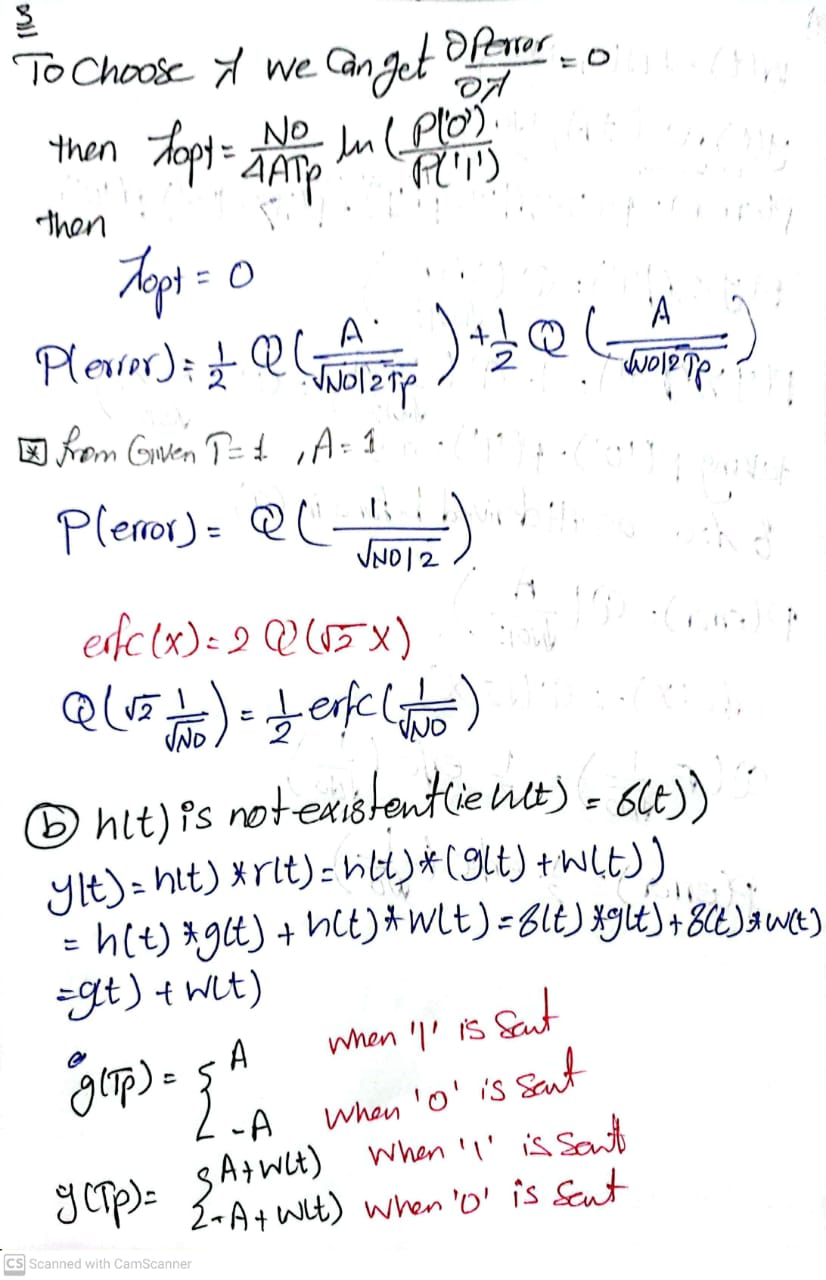 3
To Choose λ we Can get ∂Perror/∂λ = 0
then λopt = No/4ATp ln(P('0')/P('1'))
then
λopt = 0
P(error) = 1/2 Q(A/√(NO/2Tp)) + 1/2 Q(A/√(NO/2Tp))
* from Given T=1, A=1
P(error) = Q(1/√(NO/2))
erfc(x) = 2Q(√2 x)
Q(√2 1/√NO) = 1/2 erfc(1/√NO)
(b) h(t) is not existent (ie h(t) = δ(t))
y(t) = h(t) * r(t) = h(t) * (g(t) + w(t))
= h(t) * g(t) + h(t) * w(t) = δ(t) * g(t) + δ(t) * w(t)
= g(t) + w(t)
g(Tp) = { A when '1' is Sent
-A when '0' is sent
y(Tp) = { A + w(t) when '1' is Sent
-A + w(t) when 'o' is Sent
CS Scanned with CamScanner